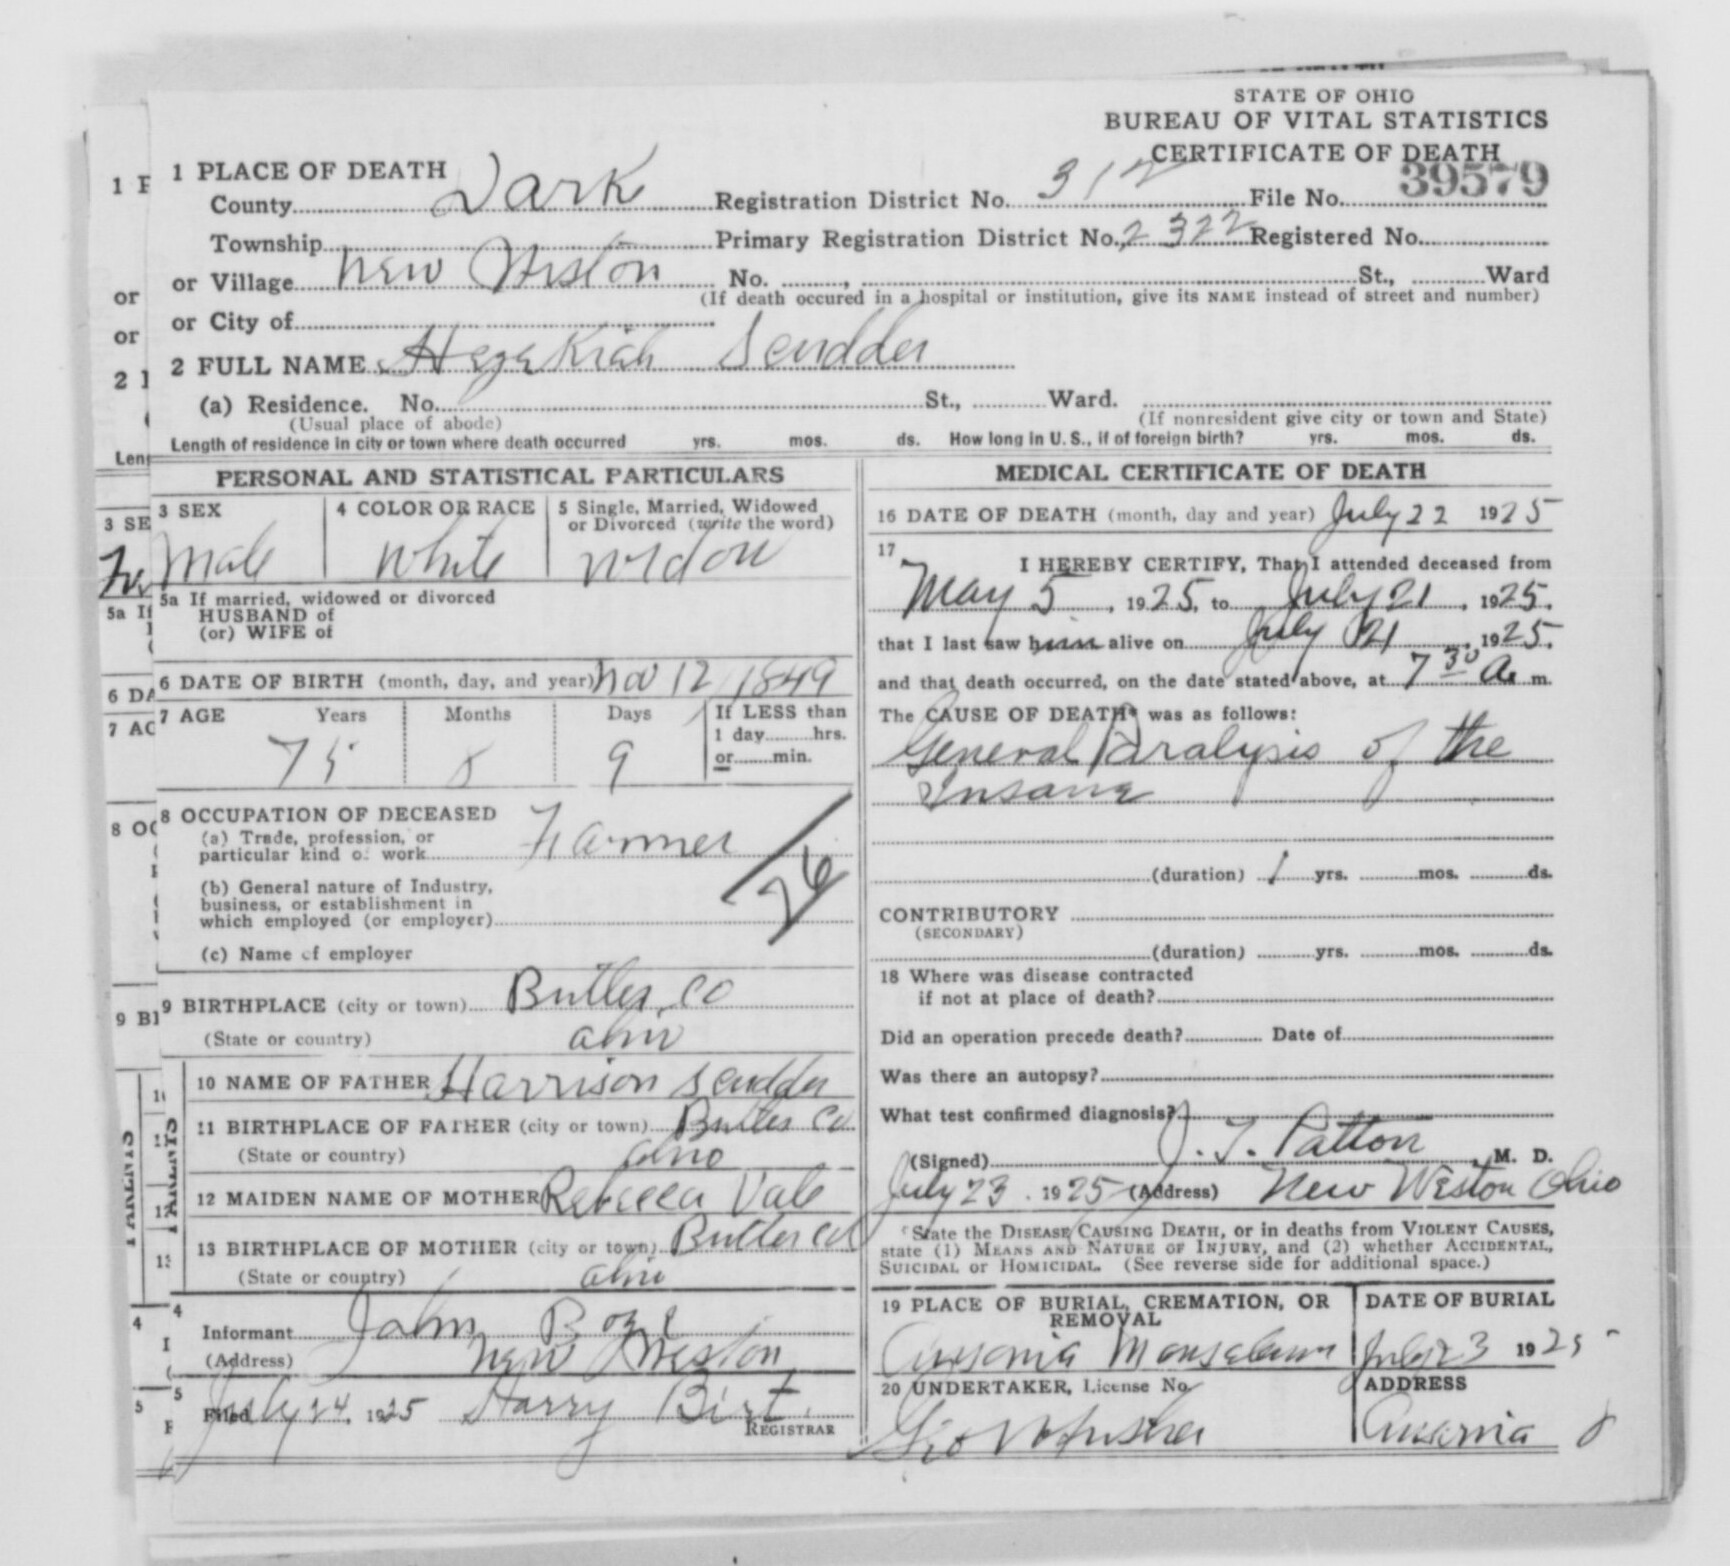 STATE OF OHIO
BUREAU OF VITAL STATISTICS
CERTIFICATE OF DEATH
39579
1 PLACE OF DEATH
County Dark Registration District No. 312 File No.
Township Primary Registration District No. 2322 Registered No.
or Village New Weston No. , St., Ward
(If death occured in a hospital or institution, give its NAME instead of street and number)
or City of
2 FULL NAME Hezekiah Scudder
(a) Residence. No. St., Ward.
(Usual place of abode) (If nonresident give city or town and State)
Length of residence in city or town where death occurred yrs. mos. ds. How long in U. S., if of foreign birth? yrs. mos. ds.
PERSONAL AND STATISTICAL PARTICULARS
3 SEX 4 COLOR OR RACE 5 Single, Married, Widowed
or Divorced (write the word)
Male White Widow
5a If married, widowed or divorced
HUSBAND of
(or) WIFE of
6 DATE OF BIRTH (month, day, and year) Nov 12 1849
7 AGE Years Months Days If LESS than
1 day hrs.
or min.
75 8 9
8 OCCUPATION OF DECEASED
(a) Trade, profession, or
particular kind of work Farmer
(b) General nature of Industry,
business, or establishment in
which employed (or employer)
(c) Name of employer
9 BIRTHPLACE (city or town) Butler Co
(State or country) Ohio
10 NAME OF FATHER Harrison Scudder
11 BIRTHPLACE OF FATHER (city or town) Butler Co
(State or country) Ohio
12 MAIDEN NAME OF MOTHER Rebecca Vale
13 BIRTHPLACE OF MOTHER (city or town) Butler Co
(State or country) Ohio
PARENTS
4
Informant John
(Address) New Weston
5
Filed July 24, 1925 Harry Birt
REGISTRAR
MEDICAL CERTIFICATE OF DEATH
16 DATE OF DEATH (month, day and year) July 22 1925
17
I HEREBY CERTIFY, That I attended deceased from
May 5, 1925, to July 21, 1925.
that I last saw him alive on July 21, 1925.
and that death occurred, on the date stated above, at 7 30 A. m.
The CAUSE OF DEATH* was as follows:
General Paralysis of the
Insane
(duration) 1 yrs. mos. ds.
CONTRIBUTORY
(SECONDARY)
(duration) yrs. mos. ds.
18 Where was disease contracted
if not at place of death?
Did an operation precede death? Date of
Was there an autopsy?
What test confirmed diagnosis?
(Signed) J. T. Patton, M. D.
July 23, 1925 (Address) New Weston Ohio
*State the DISEASE CAUSING DEATH, or in deaths from VIOLENT CAUSES,
state (1) MEANS AND NATURE OF INJURY, and (2) whether ACCIDENTAL,
SUICIDAL or HOMICIDAL. (See reverse side for additional space.)
19 PLACE OF BURIAL, CREMATION, OR
REMOVAL
Ansonia Mausoleum
DATE OF BURIAL
July 23 1925
20 UNDERTAKER, License No.
Geo
ADDRESS
Ansonia O